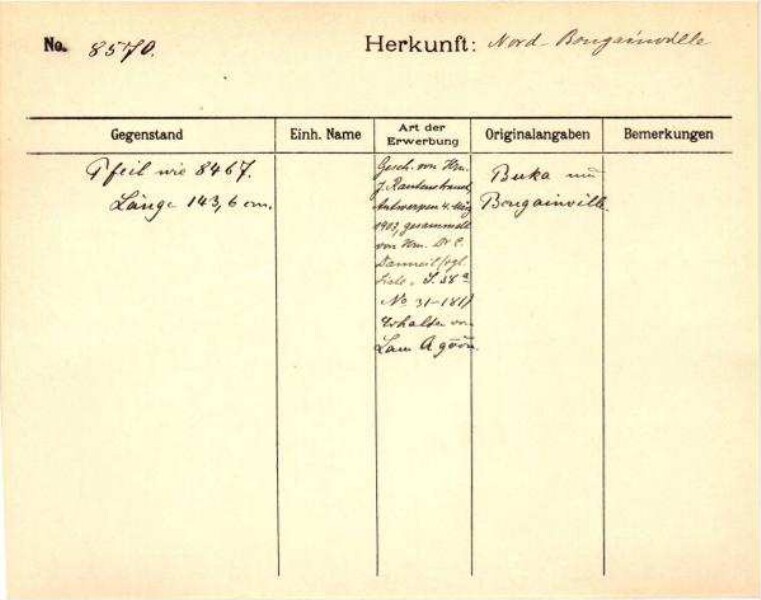 No. 8570. Herkunft: Nord-Bougainville
Gegenstand Einh. Name Art der Erwerbung Originalangaben Bemerkungen
Pfeil wie 8467.
Länge 143,6 cm.
Gesch. von Hrn.
J. Rautenstrauch
Antwerpen 4. März
1903, gesammelt
von Hrn. Dr C.
Danneil (vgl.
Liste, S. 38a
No 31-181)
Erhalten von
Lau
Buka und
Bougainville.